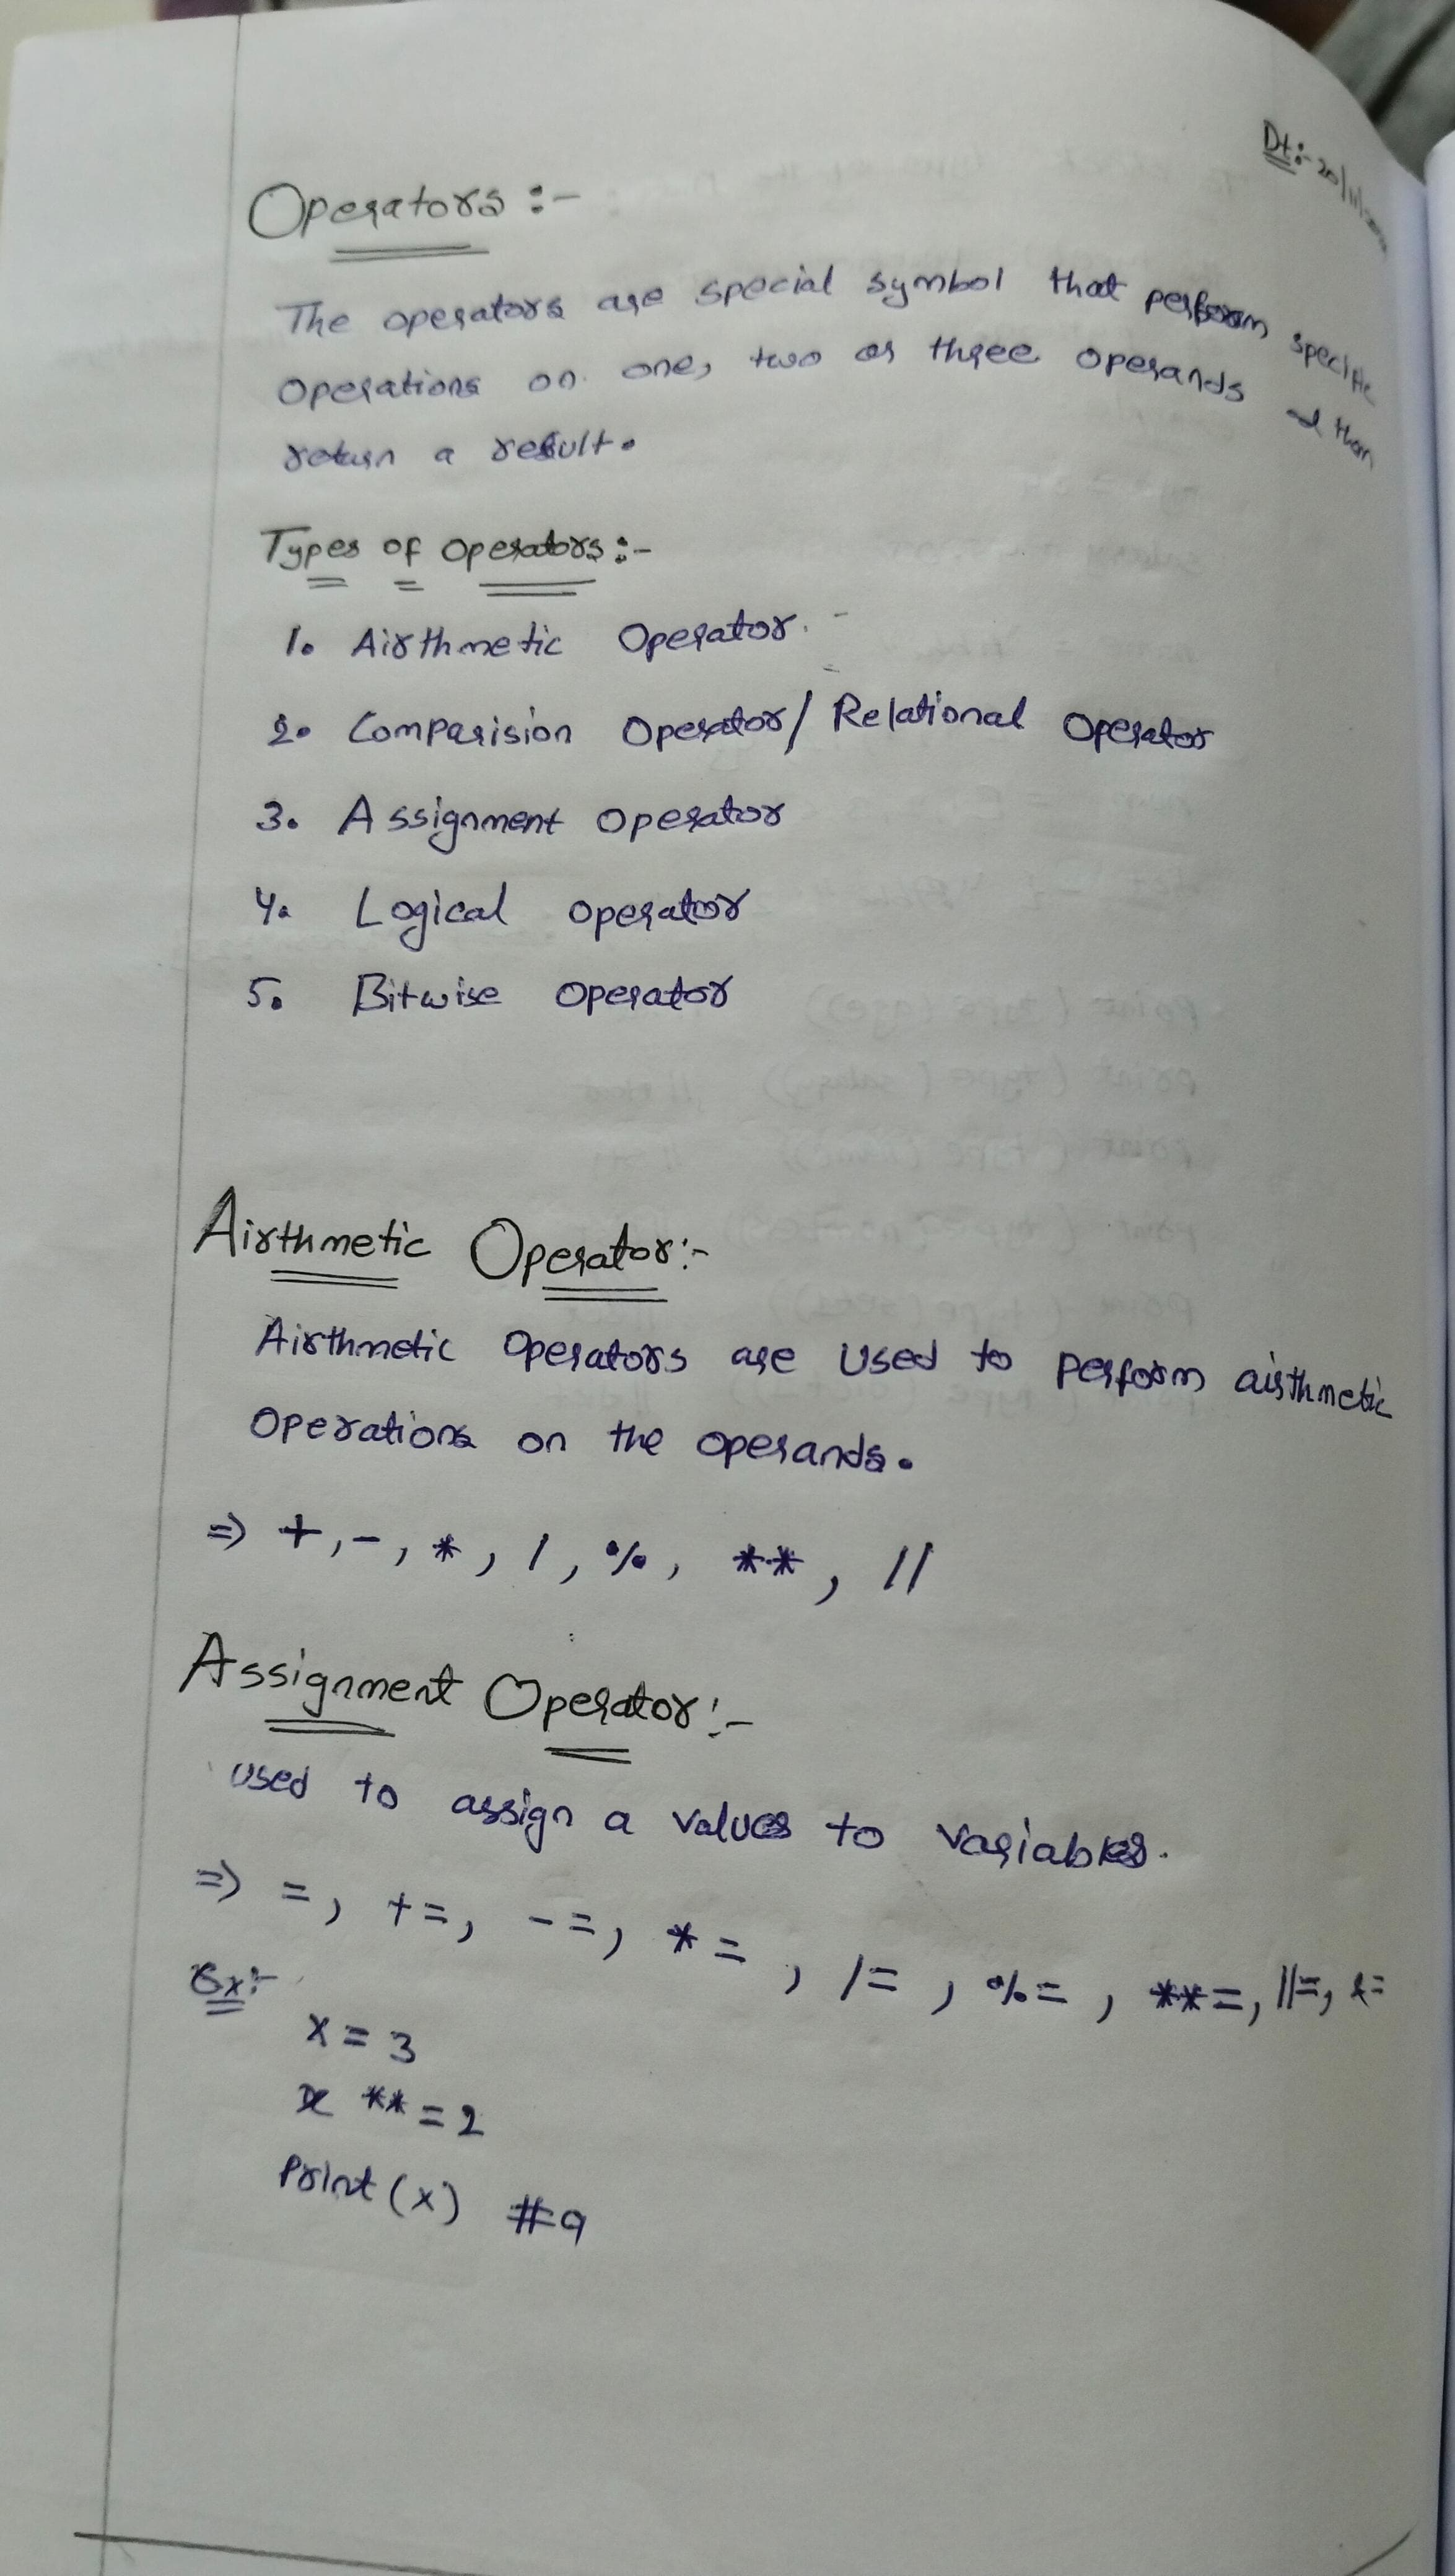 Dt:- 20/11/
Operators :-
The operators are special symbol that perform specific
operations on one, two or three operands & then
return a result.
Types of operators :-
1. Airthmetic Operator.
2. Comparision Operator/ Relational Operator
3. Assignment Operator
4. Logical operator
5. Bitwise Operator
Airthmetic Operator:-
Airthmetic Operators are used to perform airthmetic
Operations on the operands.
=> +, -, *, /, %, **, //
Assignment Operator:-
used to assign a values to variables.
=> =, +=, -=, *=, /=, %=, **=, //=, &=
Ex:-
x = 3
x **= 2
Print (x) #9